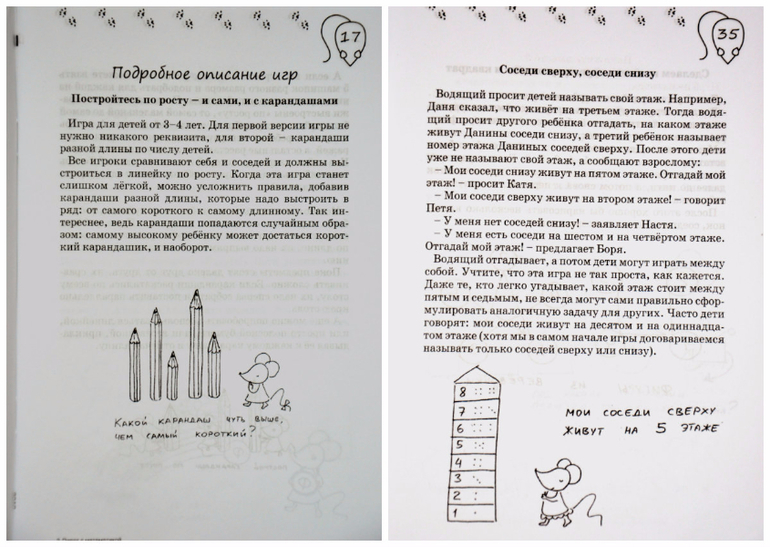 17
Подробное описание игр
Постройтесь по росту – и сами, и с карандашами
Игра для детей от 3–4 лет. Для первой версии игры не
нужно никакого реквизита, для второй – карандаши
разной длины по числу детей.
Все игроки сравнивают себя и соседей и должны вы-
строиться в линейку по росту. Когда эта игра станет
слишком лёгкой, можно усложнить правила, добавив
карандаши разной длины, которые надо выстроить в
ряд: от самого короткого к самому длинному. Так ин-
тереснее, ведь карандаши попадаются случайным обра-
зом: самому высокому ребёнку может достаться корот-
кий карандашик, и наоборот.
КАКОЙ КАРАНДАШ ЧУТЬ ВЫШЕ,
ЧЕМ САМЫЙ КОРОТКИЙ?
35
Соседи сверху, соседи снизу
Водящий просит детей называть свой этаж. Например,
Даня сказал, что живёт на третьем этаже. Тогда водя-
щий просит другого ребёнка отгадать, на каком этаже
живут Данины соседи снизу, а третий ребёнок называет
номер этажа Даниных соседей сверху. После этого дети
уже не называют свой этаж, а сообщают взрослому:
– Мои соседи снизу живут на пятом этаже. Отгадай мой
этаж! – просит Катя.
– Мои соседи сверху живут на втором этаже! – говорит
Петя.
– У меня нет соседей снизу! – заявляет Настя.
– У меня есть соседи на шестом и на четвёртом этаже.
Отгадай мой этаж! – предлагает Боря.
Водящий отгадывает, а потом дети могут играть между
собой. Учтите, что эта игра не так проста, как кажется.
Даже те, кто легко угадывает, какой этаж стоит между
пятым и седьмым, не всегда могут сами правильно сфор-
мулировать аналогичную задачу для других. Часто дети
говорят: мои соседи живут на десятом и одиннадца-
том этаже (хотя мы в самом начале игры договариваемся
называть только соседей сверху или снизу).
8
7
6
5
4
3
2
1
МОИ СОСЕДИ СВЕРХУ
ЖИВУТ НА 5 ЭТАЖЕ